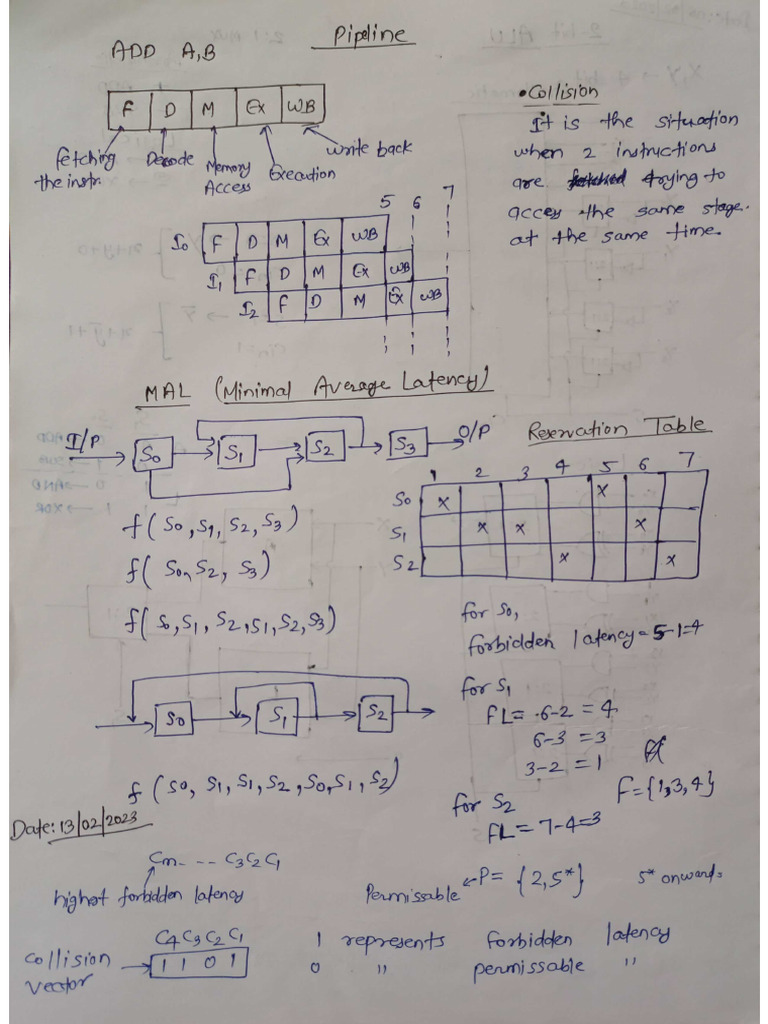 Pipeline
ADD A,B
F D M Ex WB
fetching the instr.
Decode
Memory Access
Execution
write back
• Collision
It is the situation
when 2 instructions
are trying to
acces the same stage.
at the same time.
5 6 7
I0 F D M Ex WB
I1 F D M Ex WB
I2 F D M Ex WB
MAL (Minimal Average Latency)
I/P S0 S1 S2 S3 O/P
f(S0,S1,S2,S3)
f(S0,S2,S3)
f(S0,S1,S2,S1,S2,S3)
Reservation Table
1 2 3 4 5 6 7
S0 x x
S1 x x x
S2 x x
for S0,
forbidden latency = 5-1=4
for S1
FL= 6-2 = 4
6-3 = 3
3-2 = 1
F={1,3,4}
for S2
FL= 7-4=3
S0 S1 S2
f (S0, S1, S1, S2, S0, S1, S2)
Date: 13/02/2023
Cm - - - C3C2C1
highest forbidden latency
Permissable ← P= {2,5*} 5* onwards
C4C3C2C1
collision vector → 1 1 0 1
1 represents forbidden latency
0 " permissable "